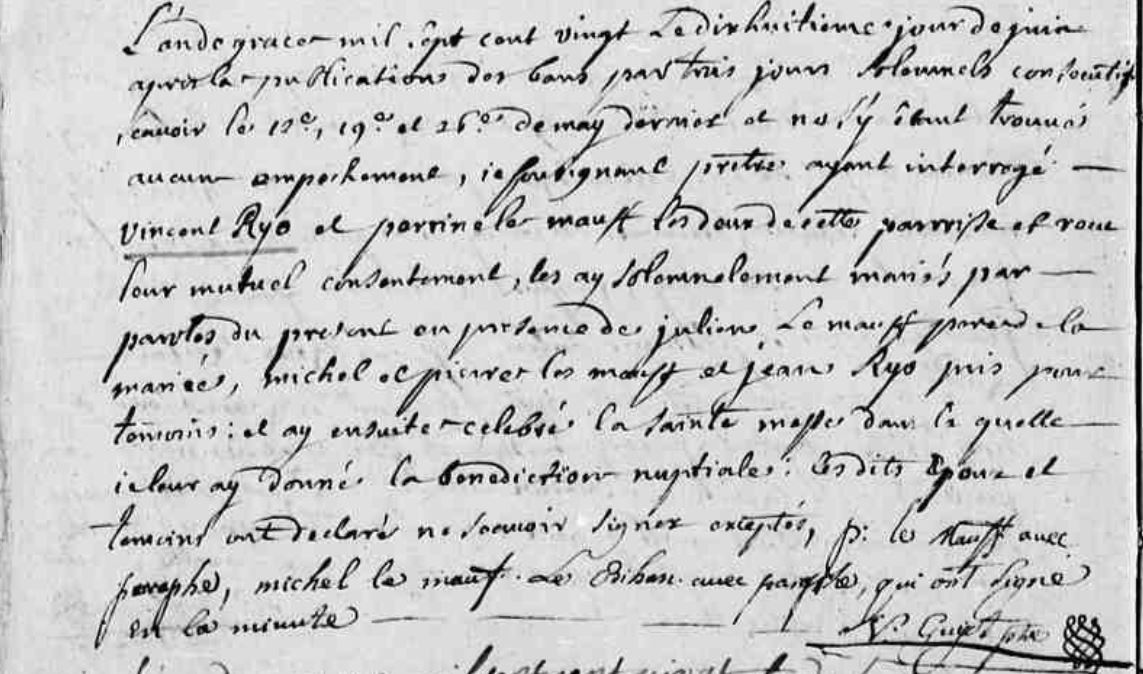 L'an de grace mil sept cent vingt Le dixhuitieme jour de juin
apres la publications des bans par trois jours solemnels consecutifs
scavoir le 12e, 19e et 26e de may dernier et ne s'y êtant trouvés
aucun empechement, ie soussignant prêtre ayant interrogé
Vincent Ryo et perrine le mauff les deux de cette parroisse et receu
leur mutuel consentement, les ay solemnelement mariés par
paroles du present en presence de julien Le mauff pere de la
mariée, michel et pierre les mauff et jean Ryo pris pour
temoins: et ay ensuite celebré la sainte messe dans la quelle
ie leur ay donné la benediction nuptiale: Lesdits Epoux et
temoins ont declaré ne scavoir signer exceptés, p: le Mauff avec
paraphe, michel le mauff. Le Bihan avec paraphe, qui ont signé
en la minute
V. Guyot ptre